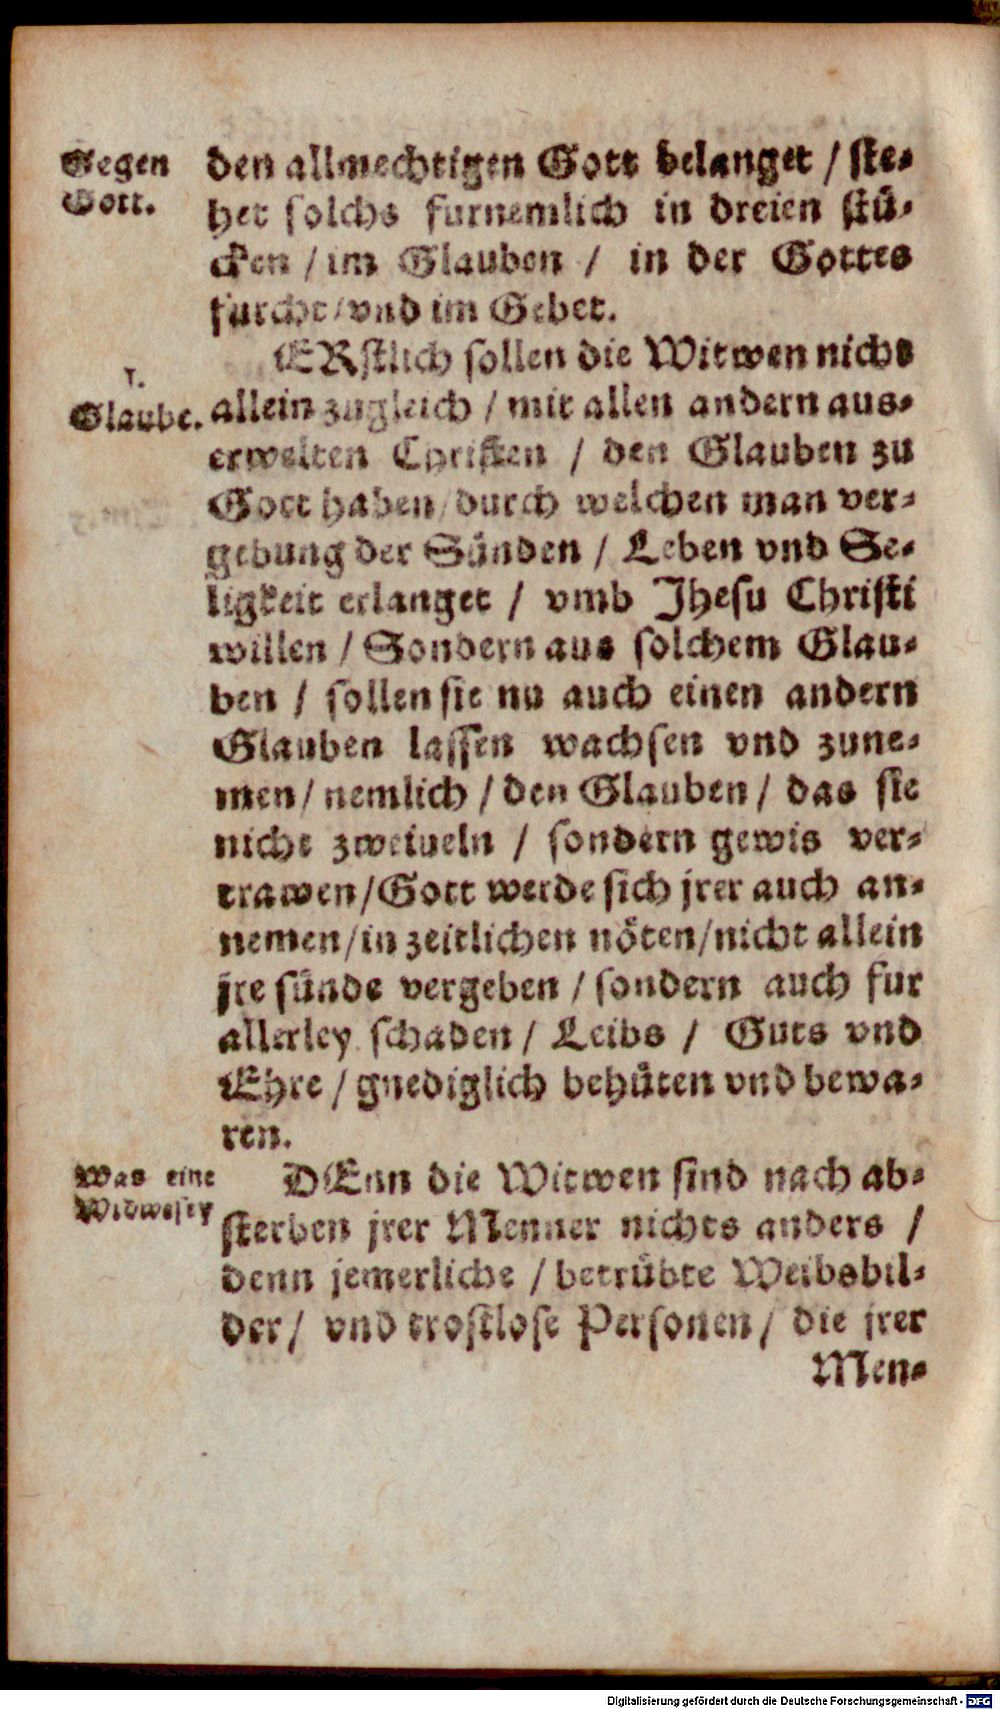 Gegen
Gott.
den allmechtigen Gott belanget / ste-
het solchs furnemlich in dreien stü-
cken / im Glauben / in der Gottes
furcht / vnd im Gebet.
ERstlich sollen die Witwen nicht
1.
Glaube.
allein zugleich / mit allen andern aus-
erwelten Christen / den Glauben zu
Gott haben / durch welchen man ver-
gebung der Sünden / Leben vnd Se-
ligkeit erlanget / vmb Jhesu Christi
willen / Sondern aus solchem Glau-
ben / sollen sie nu auch einen andern
Glauben lassen wachsen vnd zune-
men / nemlich / den Glauben / das sie
nicht zweiueln / sondern gewis ver-
trawen / Gott werde sich jrer auch an-
nemen / in zeitlichen nöten / nicht allein
jre sünde vergeben / sondern auch fur
allerley schaden / Leibs / Guts vnd
Ehre / gnediglich behüten vnd bewa-
ren.
Was eine
Widwe sey
DEnn die Witwen sind nach ab-
sterben jrer Menner nichts anders /
denn jemerliche / betrübte Weibsbil-
der / vnd trostlose Personen / die jrer
Men-
Digitalisierung gefördert durch die Deutsche Forschungsgemeinschaft - DFG